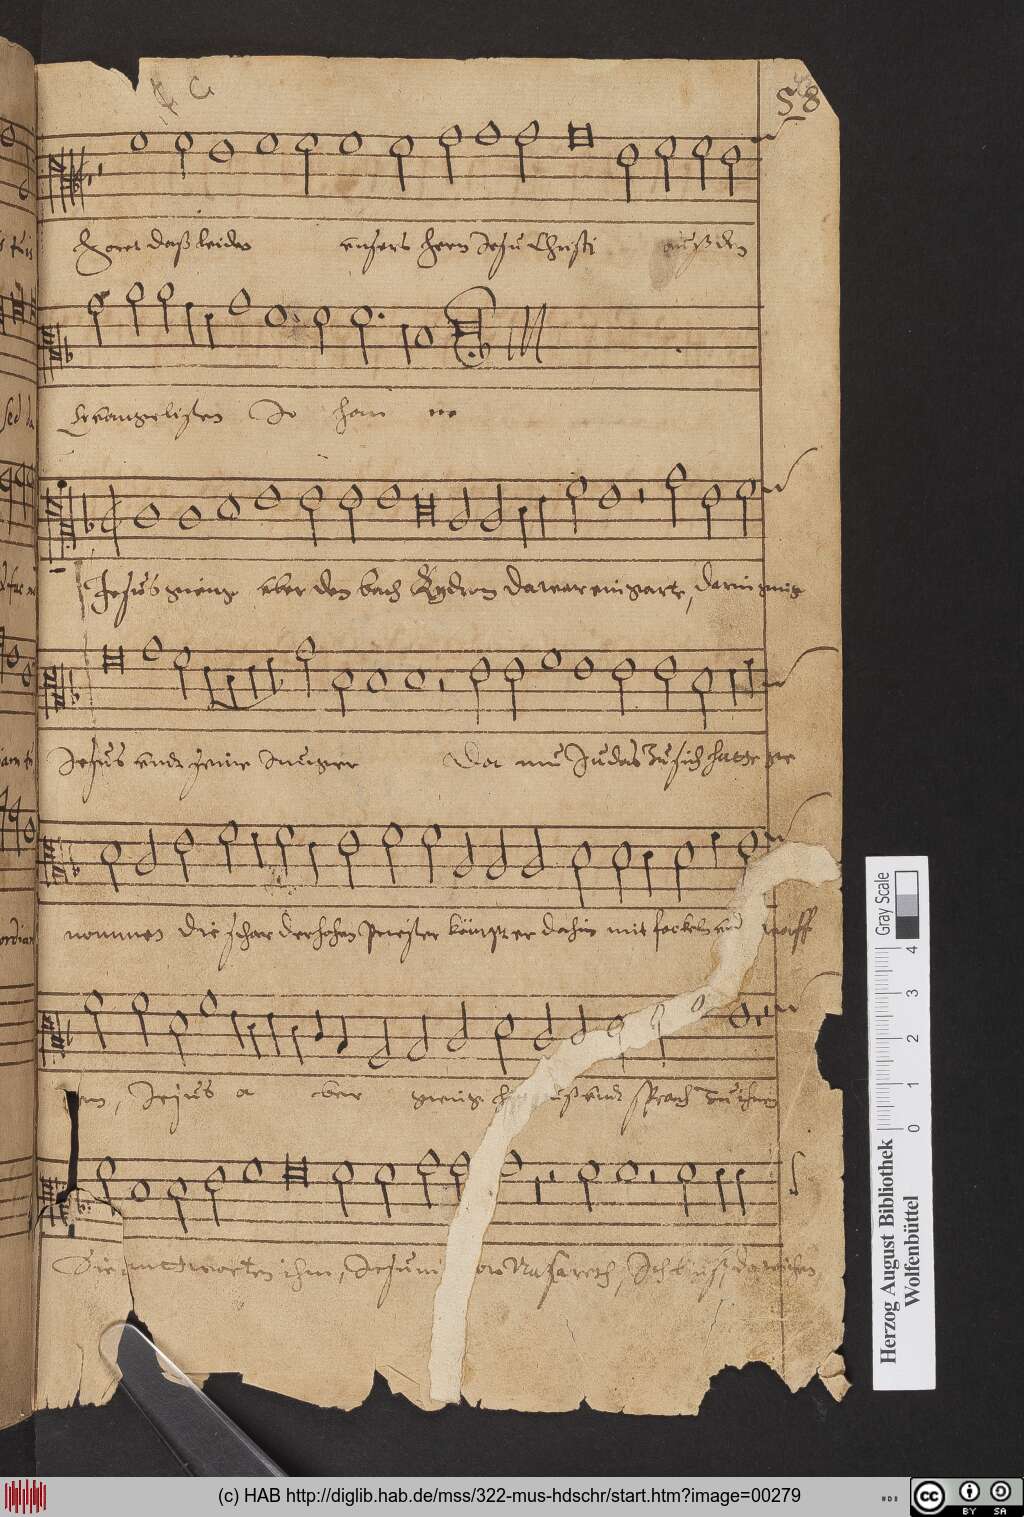 58
Horet daß leiden unsers hern Jesu Christi auß den
Evangelisten Jo han ne
Jesus gieng uber den bach Kydron da war ein garte, darin ging
Jesus undt seine Junger Da nu Judas zu sich hatte ge
nommen die schar der hohen Priester kömpt er dahin mit fackeln und waff
en, Jesus a ber gieng h auß undt sprach zu ihnen
Sie antworten ihm, Jesum von Nasareth, Ich
Gray Scale
4
3
2
1
0
Herzog August Bibliothek
Wolfenbüttel
(c) HAB http://diglib.hab.de/mss/322-mus-hdschr/start.htm?image=00279
cc
BY SA